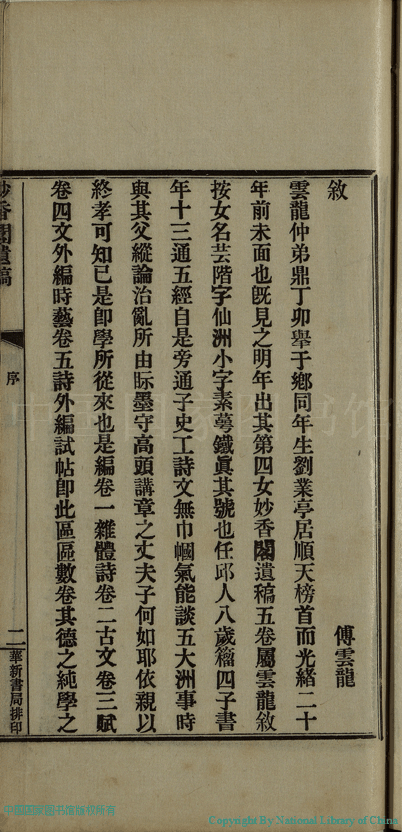 敘
傅雲龍
雲龍仲弟鼎丁卯舉于鄉同年生劉業亭居順天榜首而光緒二十
年前未面也旣見之明年出其第四女妙香閣遺稿五卷屬雲龍敘
按女名芸階字仙洲小字素蕚鐵眞其號也任邱人八歲籀四子書
年十三通五經自是旁通子史工詩文無巾幗氣能談五大洲事時
與其父縱論治亂所由眎墨守高頭講章之丈夫子何如耶依親以
終孝可知已是卽學所從來也是編卷一雜體詩卷二古文卷三賦
卷四文外編時藝卷五詩外編試帖卽此區區數卷其德之純學之
妙香閣遺稿
序
二
華新書局排印
中国国家图书馆
中国国家图书馆版权所有
Copyright By National Library of China